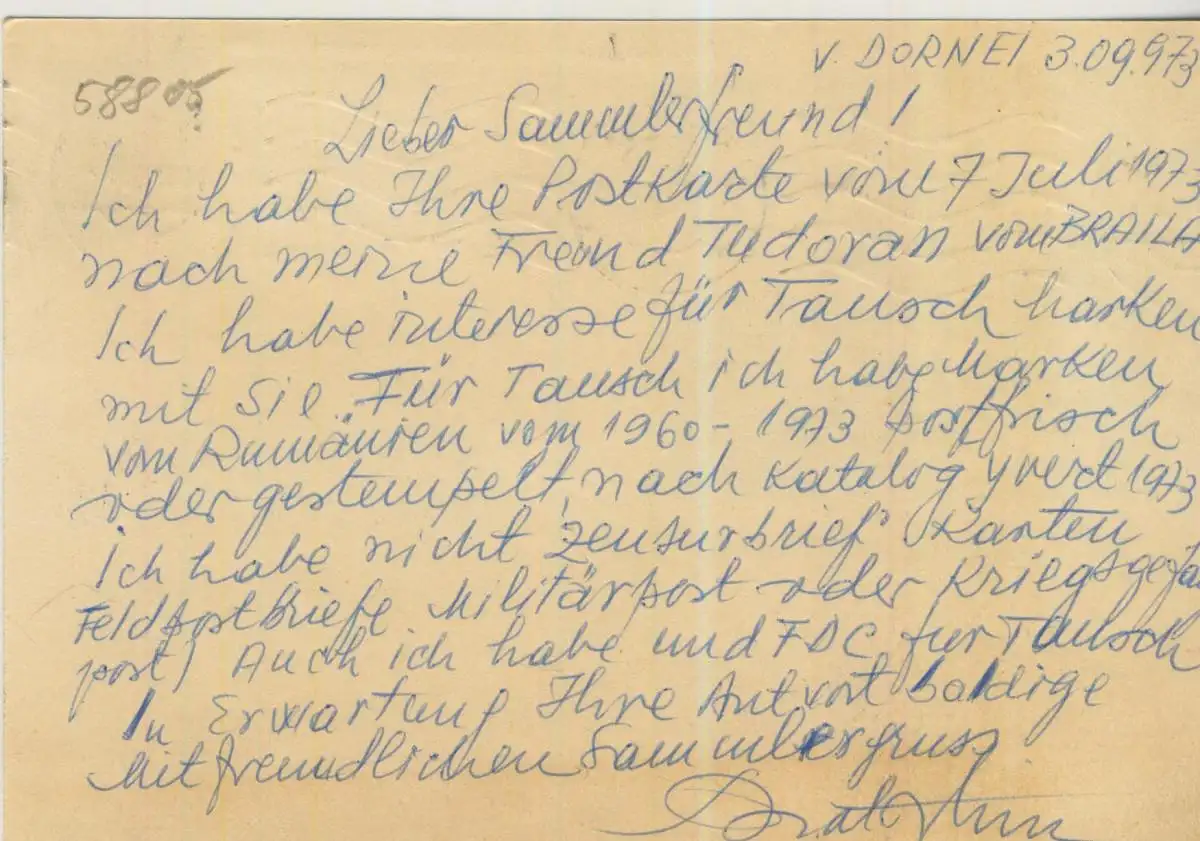 V. DORNEI 3.09.973
58805
Lieber Sammlerfreund!
Ich habe Ihre Postkarte vom 7 Juli 1973
nach meine Freund Tudoran vom BRAILA
Ich habe interesse für Tausch Marken
mit Sie. Für Tausch ich habe Marken
vom Rumänien vom 1960-1973 postfrisch
oder gestempelt, nach Katalog yvert 1973
Ich habe nicht Zensurbrief Karten
Feldpostbriefe Militärpost oder Kriegsgefa
post) Auch ich habe und FDC für Tausch
In Erwartung Ihre Antvort baldige
Mit freundlichen Sammlergruss